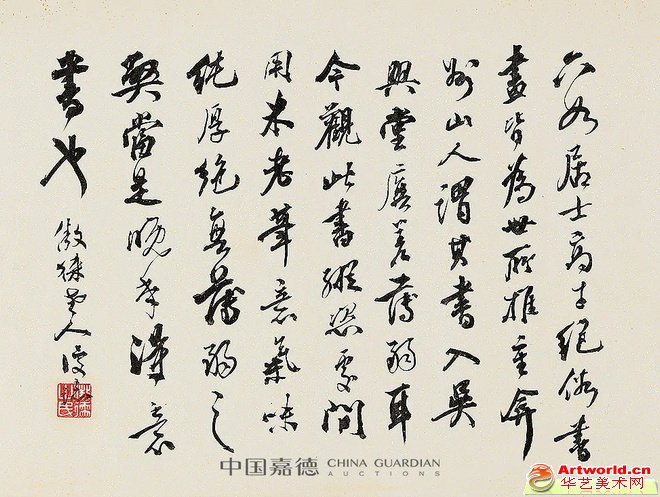 六如居士高才絕俗書
畫皆為世所推重弇
州山人謂其書入吳
興堂廡差薄弱耳
今觀此書縱恣處間
用米老筆意氣味
純厚絕無薄弱之
獘當是晚年得意
書也
老人
中国嘉德 CHINA GUARDIAN
AUCTIONS
Artworld.cn
华艺美术网